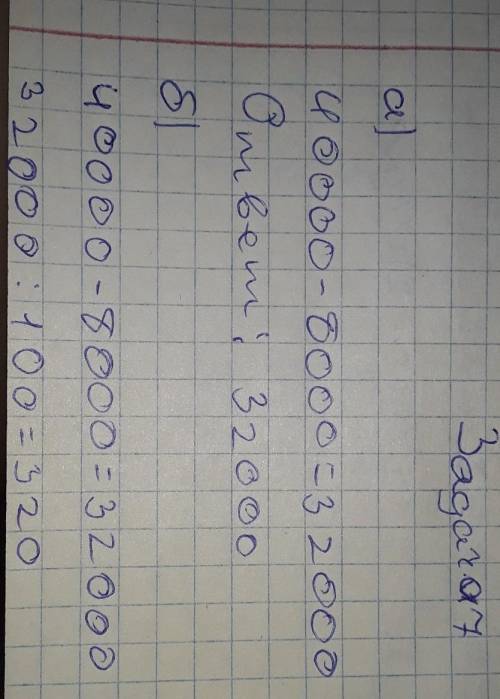 Задача 7
а)
40000-8000=32000
Ответ: 32000
б)
40000-8000=32000
32000:100=320